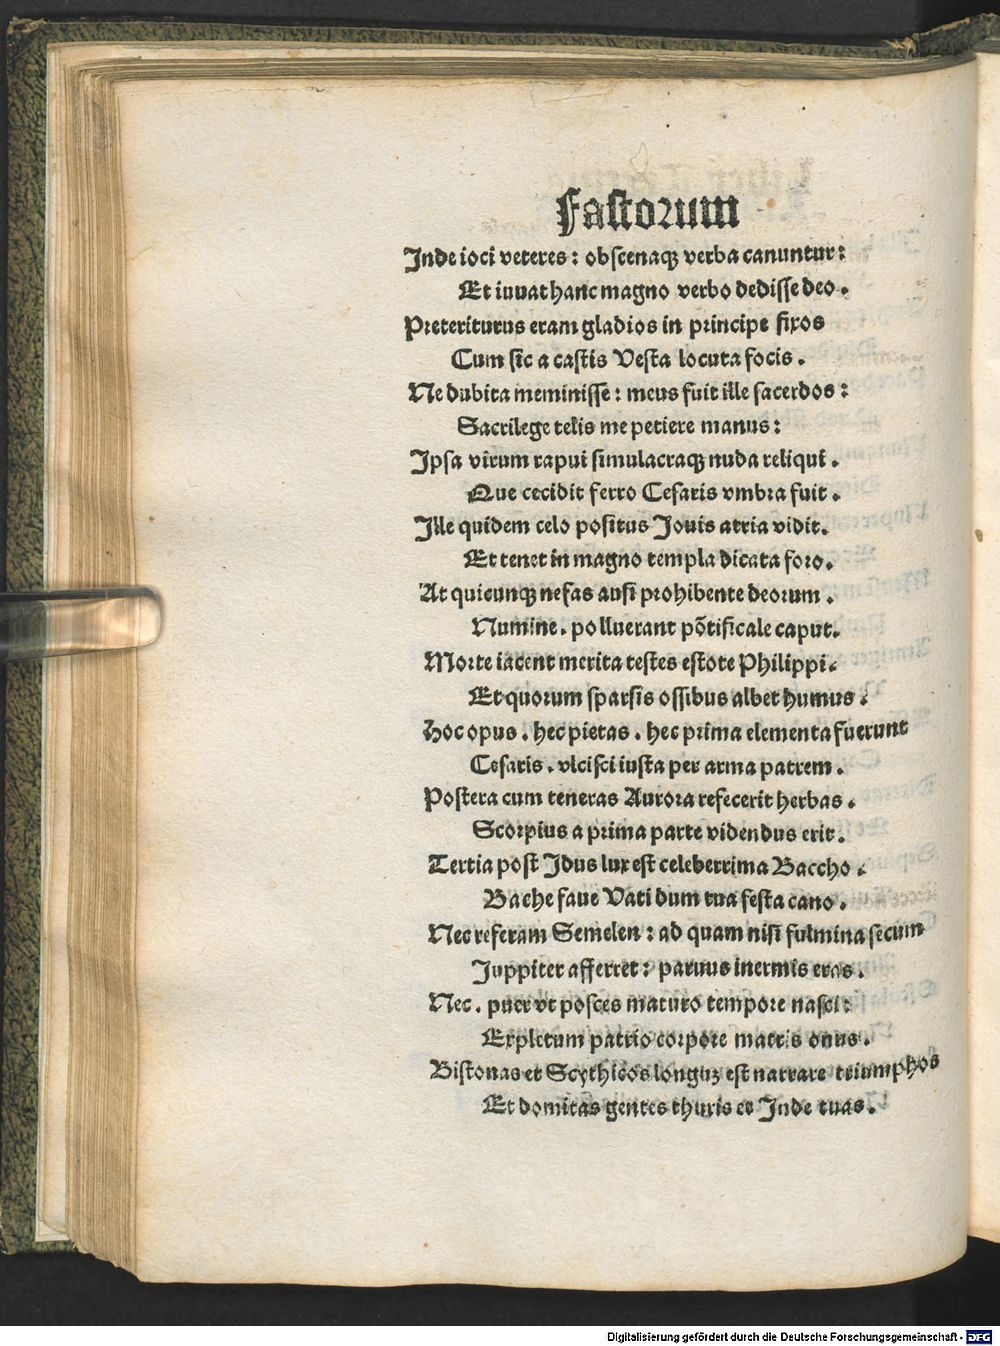 Fastorum
Inde ioci veteres : obscenaqꝫ verba canuntur :
Et iuuat hanc magno verbo dedisse deo .
Preteriturus eram gladios in principe fixos
Cum sic a castis Vesta locuta focis .
Ne dubita meminisse : meus fuit ille sacerdos :
Sacrilege telis me petiere manus :
Ipsa virum rapui simulacraqꝫ nuda reliqui .
Que cecidit ferro Cesaris vmbra fuit .
Ille quidem celo positus Iouis atria vidit .
Et tenet in magno templa dicata foro .
At quicunqꝫ nefas ausi prohibente deorum .
Numine . polluerant põtificale caput .
Morte iacent merita testes estote Philippi .
Et quorum sparsis ossibus albet humus .
Hoc opus . hec pietas . hec prima elementa fuerunt
Cesaris . vlcisci iusta per arma patrem .
Postera cum teneras Aurora refecerit herbas .
Scorpius a prima parte videndus erit .
Tertia post Idus lux est celeberrima Baccho .
Bache faue Vati dum tua festa cano .
Nec referam Semelen : ad quam nisi fulmina secum
Iuppiter afferret : paruus inermis eras .
Nec . puer vt posces maturo tempore nasci :
Expletum patrio corpore matris onus .
Bistonas et Scythicos longuꝫ est narrare triumphos
Et domitas gentes thuris et Inde tuas .
Digitalisierung gefördert durch die Deutsche Forschungsgemeinschaft - DFG